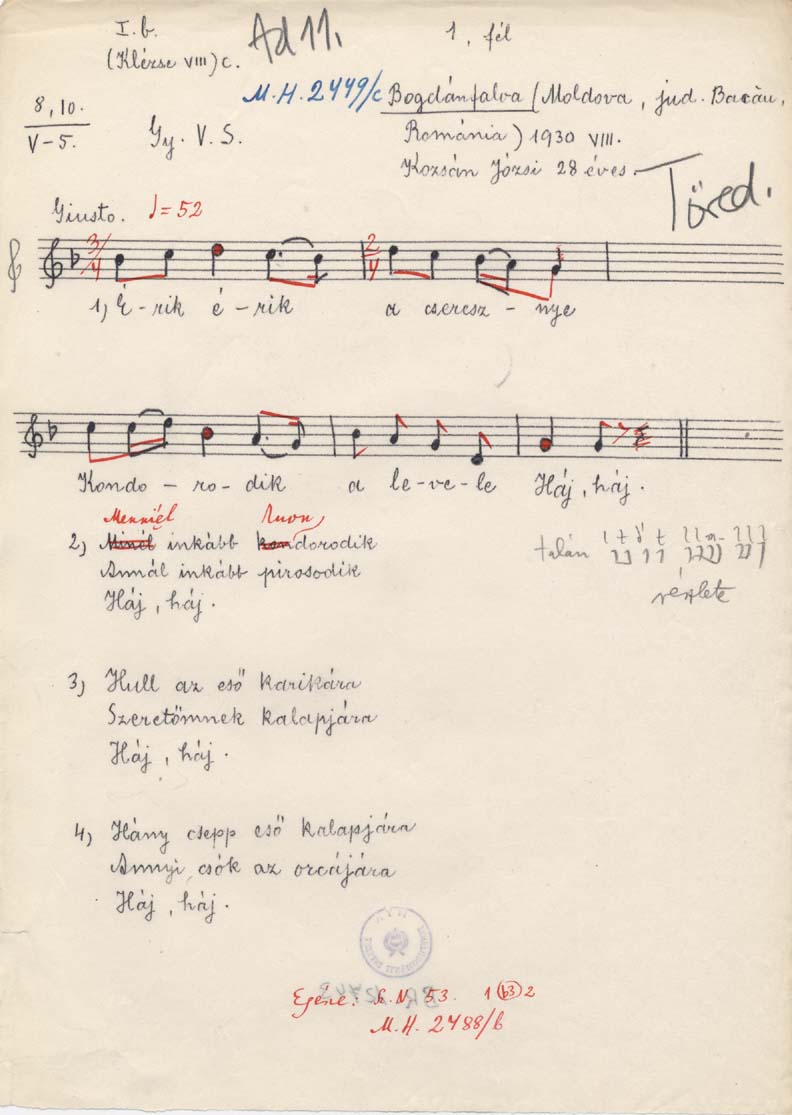 I. b.
Ad 11.
1, fél
(Klézse VIII) c.
M.H. 2449/c Bogdánfalva (Moldova, jud. Bacău,
8, 10.
V-5.
Gy. V. S.
Románia) 1930 VIII.
Kozsán Józsi 28 éves.
Töred.
Giusto. = 52
3/4 2/4
1, É-rik é-rik a cseresz-nye
Kondo-ro-dik a le-ve-le Háj, háj.
Menniél
2, Minél inkább kondorodik
Annál inkább pirosodik
Háj, háj.
talán
részlete
3, Hull az eső karikára
Szeretőmnek kalapjára
Háj, háj.
4, Hány csepp eső kalapjára
Annyi csók az orcájára
Háj, háj.
53. 1 b3 2
M.H. 2488/b